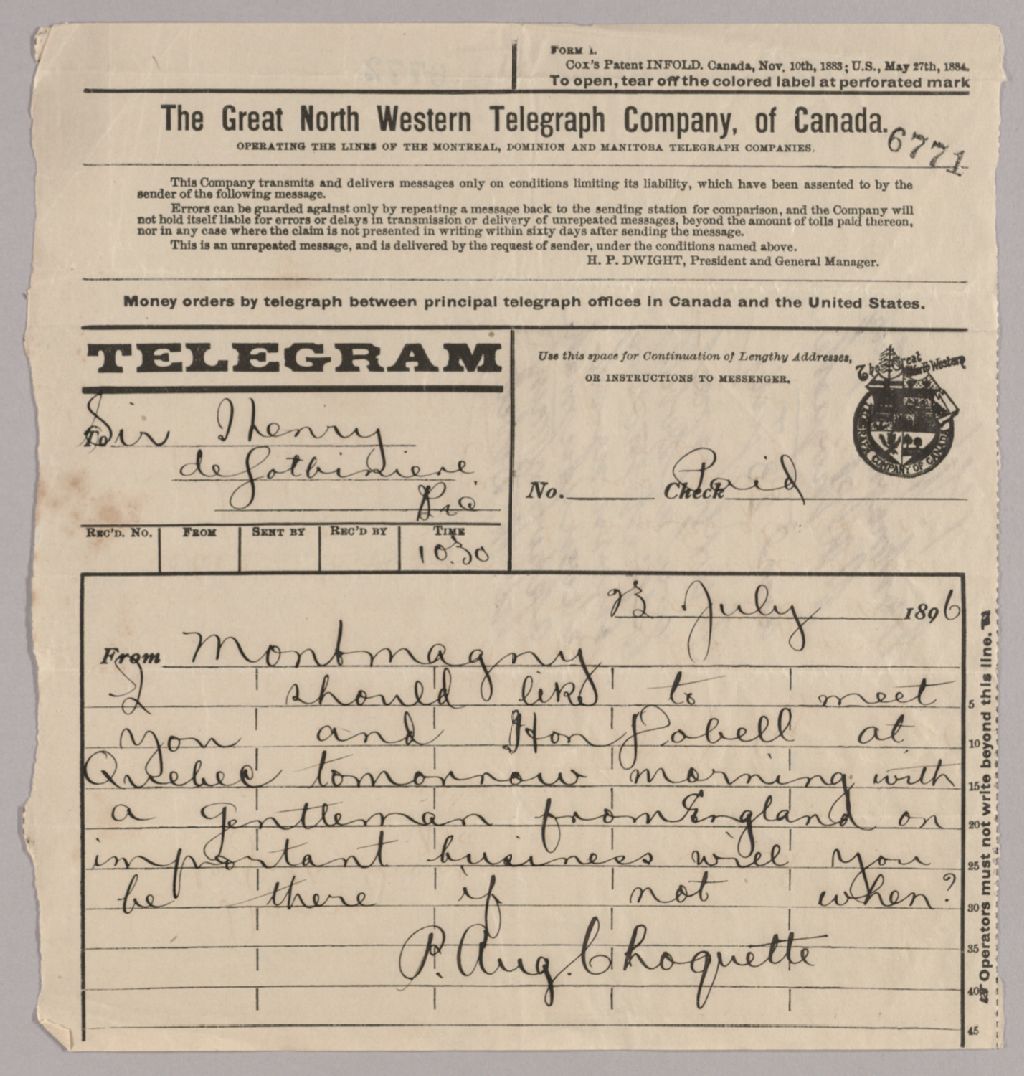 FORM 1.
Cox's Patent INFOLD. Canada, Nov. 10th, 1883; U.S., May 27th, 1884.
To open, tear off the colored label at perforated mark
The Great North Western Telegraph Company, of Canada.
6771
OPERATING THE LINES OF THE MONTREAL, DOMINION AND MANITOBA TELEGRAPH COMPANIES.
This Company transmits and delivers messages only on conditions limiting its liability, which have been assented to by the
sender of the following message.
Errors can be guarded against only by repeating a message back to the sending station for comparison, and the Company will
not hold itself liable for errors or delays in transmission or delivery of unrepeated messages, beyond the amount of tolls paid thereon,
nor in any case where the claim is not presented in writing within sixty days after sending the message.
This is an unrepeated message, and is delivered by the request of sender, under the conditions named above.
H. P. DWIGHT, President and General Manager.
Money orders by telegraph between principal telegraph offices in Canada and the United States.
TELEGRAM
Use this space for Continuation of Lengthy Addresses,
OR INSTRUCTIONS TO MESSENGER.
The Great
North Western
COMPANY OF CANADA
To Sir Henry
de Lotbiniere
No. Check Paid
REC'D. No. FROM SENT BY REC'D BY TIME
10.30
23 July 1896
From Montmagny
I should like to meet
5
you and Hon Dobell at
10
Quebec tomorrow morning with
15
a Gentleman from England on
20
important business will you
25
be there if not when?
30
35
P. Aug. Choquette
40
45
Operators must not write beyond this line.